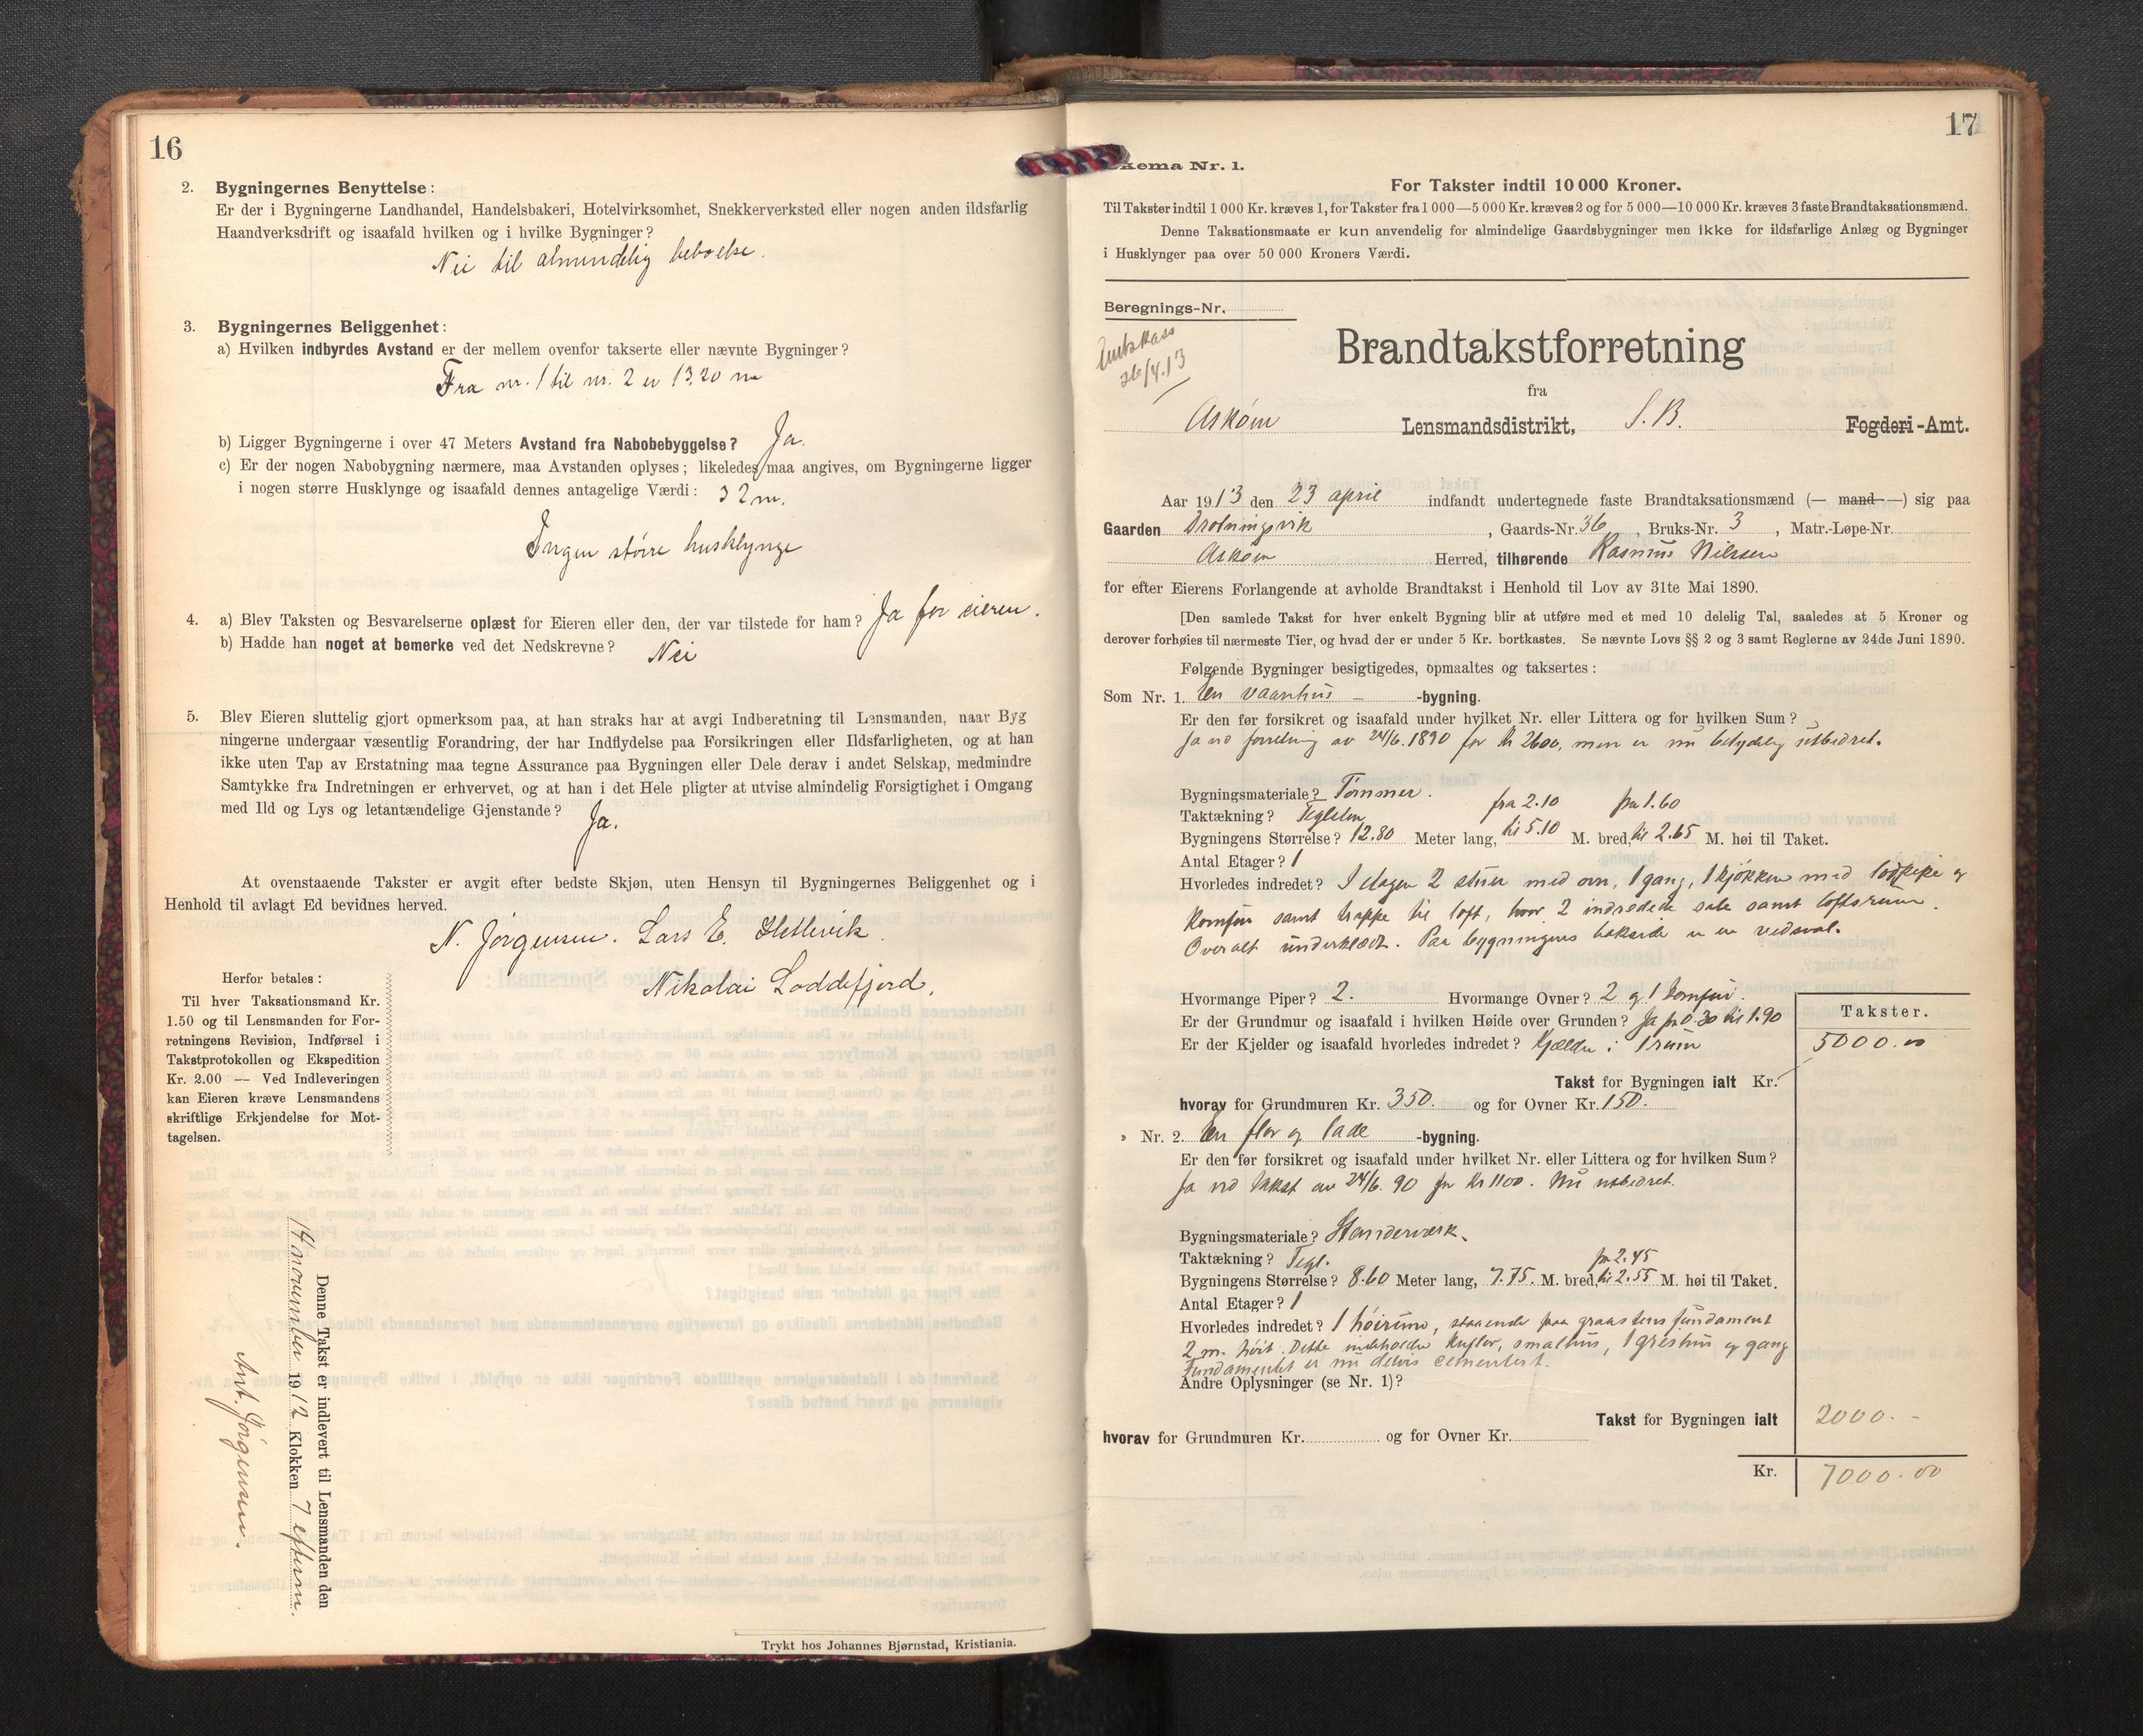 16
2. Bygningernes Benyttelse:
Er der i Bygningerne Landhandel, Handelsbakeri, Hotelvirksomhet, Snekkerverksted eller nogen anden ildsfarlig
Haandverksdrift og isaafald hvilken og i hvilke Bygninger?
Nei til almindelig beboelse.
3. Bygningernes Beliggenhet:
a) Hvilken indbyrdes Avstand er der mellem ovenfor takserte eller nævnte Bygninger?
Fra nr. 1 til nr. 2 er 13,20 m
b) Ligger Bygningerne i over 47 Meters Avstand fra Nabobebyggelse? Ja.
c) Er der nogen Nabobygning nærmere, maa Avstanden oplyses; likeledes maa angives, om Bygningerne ligger
i nogen større Husklynge og isaafald dennes antagelige Værdi: 32 m.
Ingen större husklynge
4. a) Blev Taksten og Besvarelserne oplæst for Eieren eller den, der var tilstede for ham? Ja for eieren.
b) Hadde han noget at bemerke ved det Nedskrevne? Nei
5. Blev Eieren sluttelig gjort opmerksom paa, at han straks har at avgi Indberetning til Lensmanden, naar Byg
ningerne undergaar væsentlig Forandring, der har Indflydelse paa Forsikringen eller Ildsfarligheten, og at han
ikke uten Tap av Erstatning maa tegne Assurance paa Bygningen eller Dele derav i andet Selskap, medmindre
Samtykke fra Indretningen er erhvervet, og at han i det Hele pligter at utvise almindelig Forsigtighet i Omgang
med Ild og Lys og letantændelige Gjenstande? Ja.
At ovenstaaende Takster er avgit efter bedste Skjøn, uten Hensyn til Bygningernes Beliggenhet og i
Henhold til avlagt Ed bevidnes herved.
N. Jörgensen. Lars E. Hetlevik
Nikolai Loddefjord.
Herfor betales:
Til hver Taksationsmand Kr.
1.50 og til Lensmanden for For-
retningens Revision, Indførsel i
Takstprotokollen og Ekspedition
Kr. 2.00 — Ved Indleveringen
kan Eieren kræve Lensmandens
skriftlige Erkjendelse for Mot-
tagelsen.
Denne Takst er indlevert til Lensmanden den
14 november 1912 Klokken 7 efterm.
Ant. Jörgensen.
Trykt hos Johannes Bjørnstad, Kristiania.
17
kema Nr. 1.
For Takster indtil 10 000 Kroner.
Til Takster indtil 1 000 Kr. kræves 1, for Takster fra 1 000—5 000 Kr. kræves 2 og for 5 000—10 000 Kr. kræves 3 faste Brandtaksationsmænd.
Denne Taksationsmaate er kun anvendelig for almindelige Gaardsbygninger men ikke for ildsfarlige Anlæg og Bygninger
i Husklynger paa over 50 000 Kroners Værdi.
Beregnings-Nr.
26/4.13
Brandtakstforretning
fra
Askøen Lensmandsdistrikt, S. B. Fogderi-Amt.
Aar 1913 den 23 april indfandt undertegnede faste Brandtaksationsmænd (— mand —) sig paa
Gaarden Drotningsvik, Gaards-Nr. 36, Bruks-Nr. 3, Matr.-Løpe-Nr.
Askøen Herred, tilhørende Rasmus Nilssen
for efter Eierens Forlangende at avholde Brandtakst i Henhold til Lov av 31te Mai 1890.
[Den samlede Takst for hver enkelt Bygning blir at utføre med et med 10 delelig Tal, saaledes at 5 Kroner og
derover forhøies til nærmeste Tier, og hvad der er under 5 Kr. bortkastes. Se nævnte Lovs §§ 2 og 3 samt Reglerne av 24de Juni 1890.
Følgende Bygninger besigtigedes, opmaaltes og taksertes:
Som Nr. 1. En vaanhus — -bygning.
Er den før forsikret og isaafald under hvilket Nr. eller Littera og for hvilken Sum?
Ja ved forretning av 24/6. 1890 for kr 2600, men er nu betydelig utbedret.
Bygningsmateriale? Tømmer.
Taktækning? Teglsten fra 2.10 fra 1.60
Bygningens Størrelse? 12.80 Meter lang, til 5.10 M. bred, til 2.65 M. høi til Taket.
Antal Etager? 1
Hvorledes indredet? I etagen 2 stuer med ovn, 1 gang, 1 kjøkken med og
komfur samt trappe til loft, hvor 2 indredede sale samt loftsrum.
Overalt underklædt. Paa bygningens bakside er en vedsval.
Hvormange Piper? 2. Hvormange Ovner? 2 og 1 komfur.
Er der Grundmur og isaafald i hvilken Høide over Grunden? Ja fra 0.30 til 1.90
Er der Kjelder og isaafald hvorledes indredet? Kjælder i 1 rum
Takster.
5000.00
Takst for Bygningen ialt Kr.
hvorav for Grundmuren Kr. 350. og for Ovner Kr. 150.
» Nr. 2. En flor og lade -bygning.
Er den før forsikret og isaafald under hvilket Nr. eller Littera og for hvilken Sum?
Ja ved takst av 24/6. 90 for kr 1100. Nu utbedret.
Bygningsmateriale? Standerverk.
Taktækning? Tegl. fra 2.45
Bygningens Størrelse? 8.60 Meter lang, 7.75. M. bred, til 2.55 M. høi til Taket.
Antal Etager? 1
Hvorledes indredet? 1 høirum, staaende paa graastens fundament
2 m. høit. Dette indeholder kuflor, smalhus, 1 grishus og gang
Fundamentet er nu delvis cementert.
Andre Oplysninger (se Nr. 1)?
Takst for Bygningen ialt 2000.-
hvorav for Grundmuren Kr. og for Ovner Kr.
Kr. 7000.00